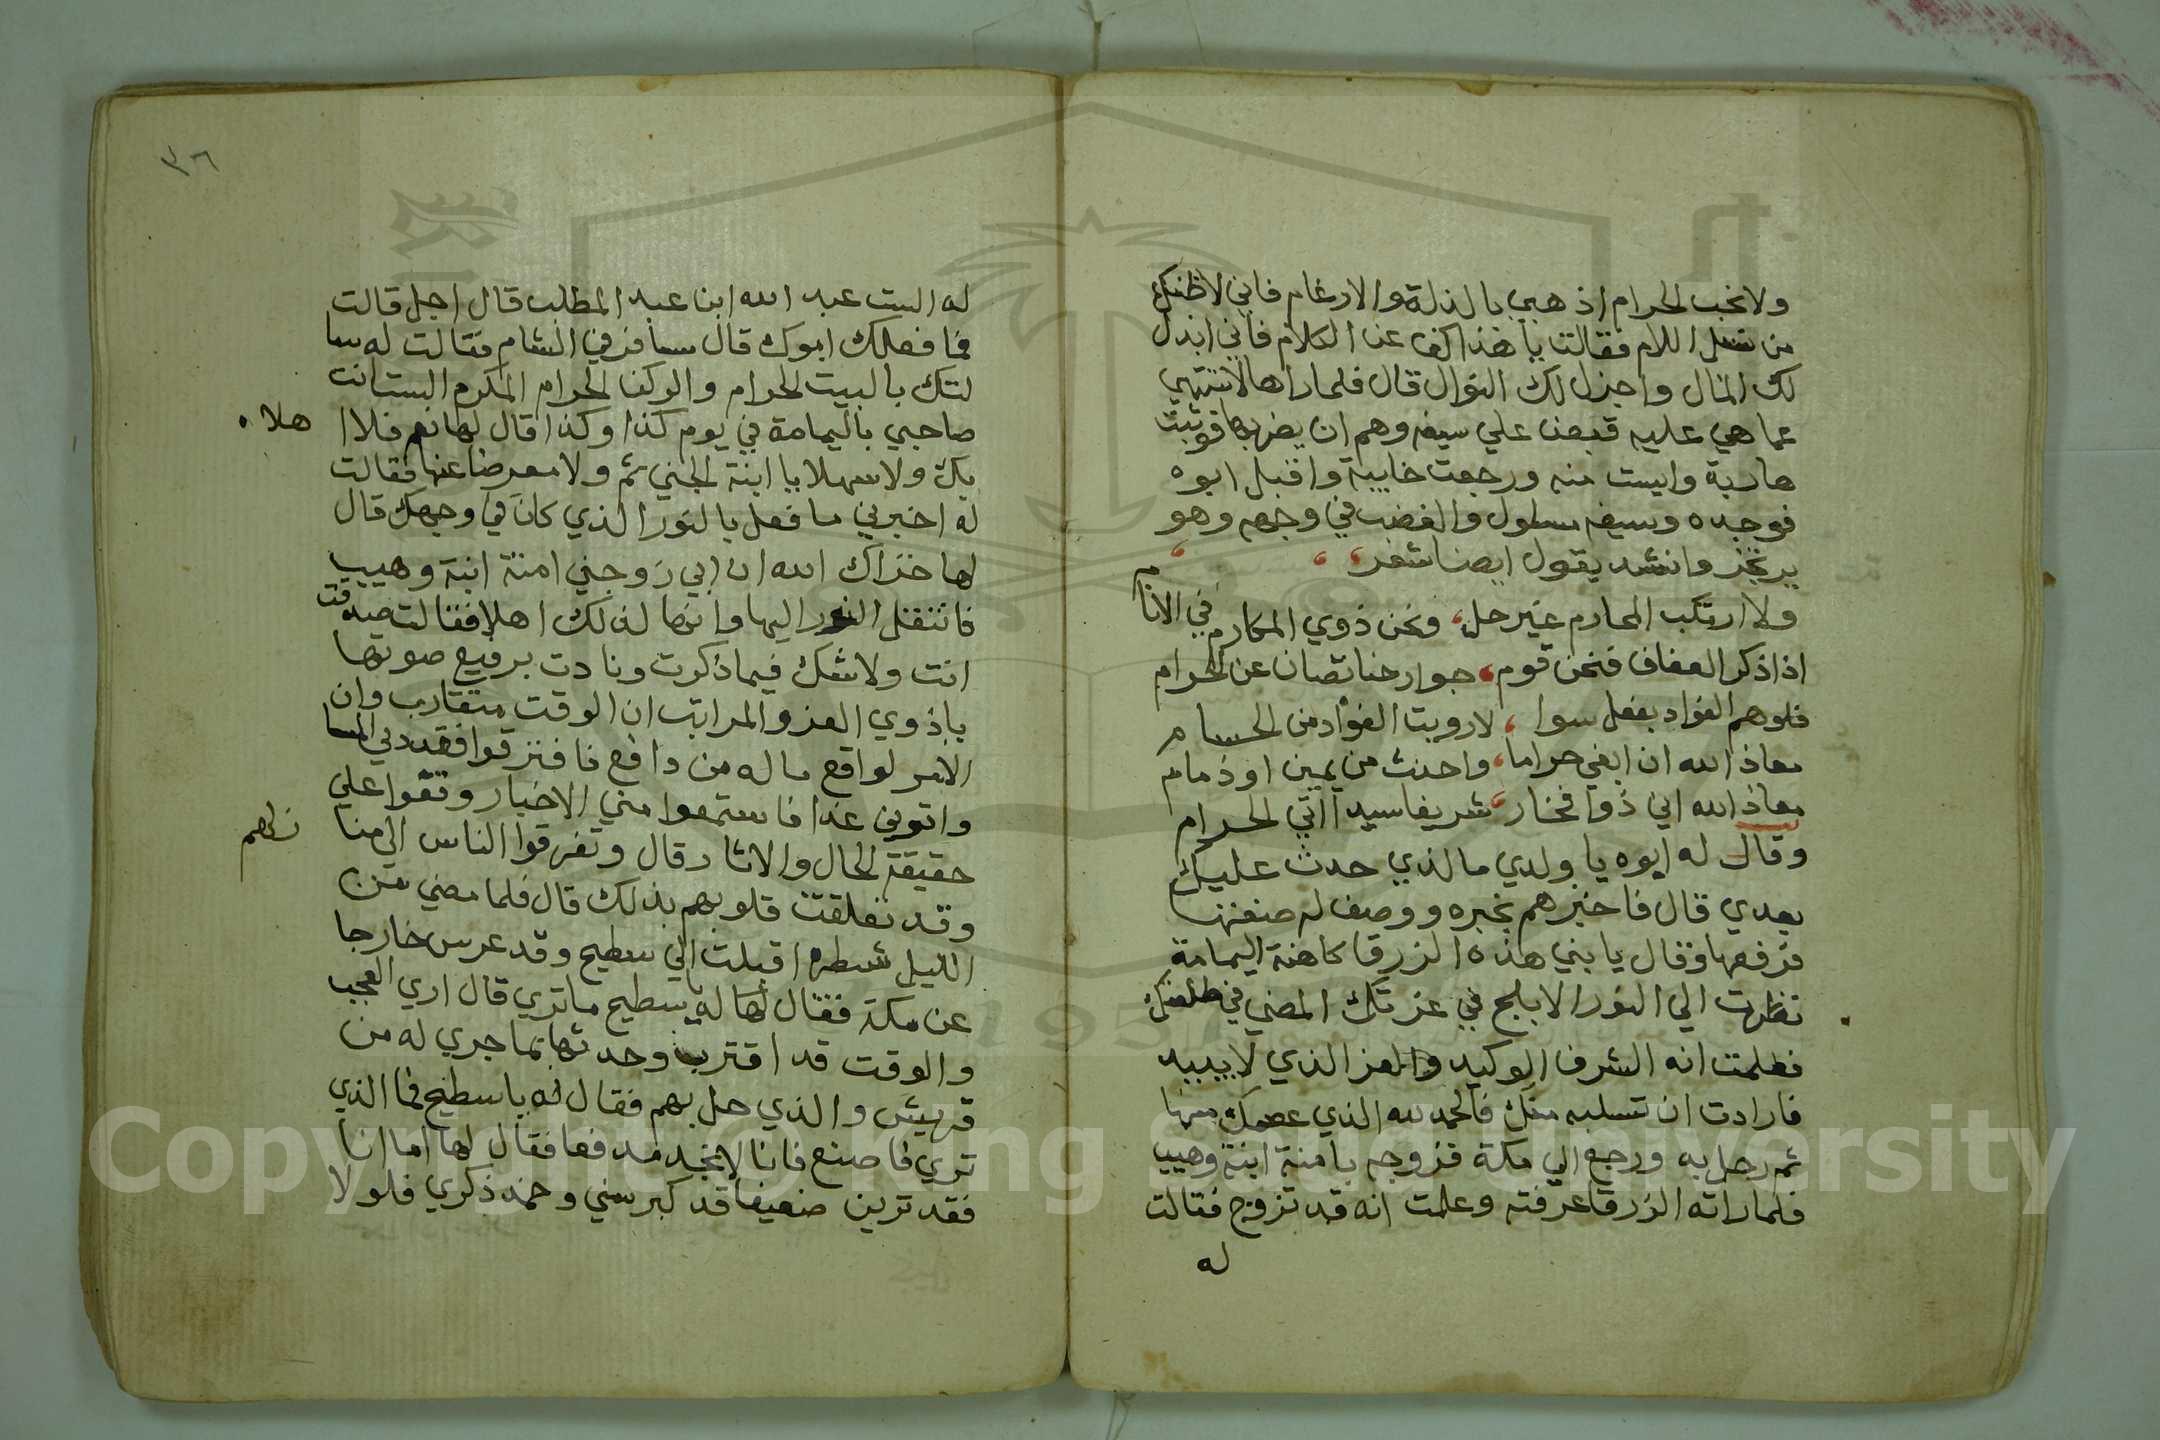 ولا نحب الحرام اذهبي بالذلة والارغام فاني لاظنك
من نسل اللام فقالت يا هذا كف عن الكلام فاني ابذل
لك المال واجزل لك النوال قال فلما راها لا تنتهي
عما هي عليه قبض علي سيفه وهم ان يضربها فوثبت
هاربة وايست منه ورجعت خايبة واقبل ابوه
فوجده وسيفه مسلول والغضب في وجهه وهو
يرتجز وانشد يقول ايضا شعر
ولا ارتكب المحارم غير حل، ونحن ذوي المكارم في الانام
اذا ذكر العفاف فنحن قوم، جوارحنا تصان عن الحرام
فلو هم الفواد بفعل سوا، لارويت الفواد من الحسام
معاذ الله ان ابغي حراما، واحنث من يمين او ذمام
معاذ الله اني ذوا فخار، شريفا سيدا اتي الحرام
وقال له ابوه يا ولدي ما لذي حدث عليك
بعدي قال فاخبرهم بخبره ووصف له صفتها
فرفعها وقال يا بني هذه الزرقا كاهنة اليمامة
نظرت الي النور الابلج في غرتك المضي في طلعتك
فعلمت انه الشرف الوكيد والعز الذي لا يبيد
فارادت ان تسلبه منك فالحمد لله الذي عصمك منها
ثم رحل به ورجع الي مكة فزوجه بامنة ابنة وهيب
فلما راته الزرقا عرفته وعلمت انه قد تزوج فقالت
له
٣٦
له الست عبد الله ابن عبد المطلب قال اجل قالت
فما فعلك ابوك قال سافر في الشام فقالت له سا
لتك بالبيت الحرام والركن الحرام المكرم الست انت
صاحبي باليمامة في يوم كذا وكذا قال لها نعم فلا ا
هلا
بك ولا سهلا يا ابنة الجني ثم ولا معرضا عنها فقالت
له اخبرني ما فعل بالنور الذي كان في وجهك قال
لها خزاك الله ان ابي زوجني امنة ابنة وهيب
فانتقل النور اليها وانها لذلك اهلا فقالت صدقت
انت ولا شك فيما ذكرت ونادت برفيع صوتها
يا ذوي العز والمراتب ان الوقت متقارب وان
الامر لواقع ما له من دافع فافترقوا فقد دني المسا
واتوني غدا فاستمعوا مني الاخبار وتقوا علي
حقيقة الحال والاثار قال وتفرقوا الناس الي منا
زلهم
وقد تعلقت قلوبهم بذلك قال فلما مضي من
الليل شطره اقبلت الي سطيح وقد عرس خارجا
عن مكة فقال لها له يا سطيح ما تري قال اري العجب
والوقت قد اقترب وحدثها بما جري له من
قريش والذي حل بهم فقال له يا سطيح فما الذي
تري فما صنع فانا لا نجد مدفعا فقال لها اما انا
فقد ترين ضعيفا قد كبر سني وخمد ذكري فلولا
Copyright © King Saud University
1957